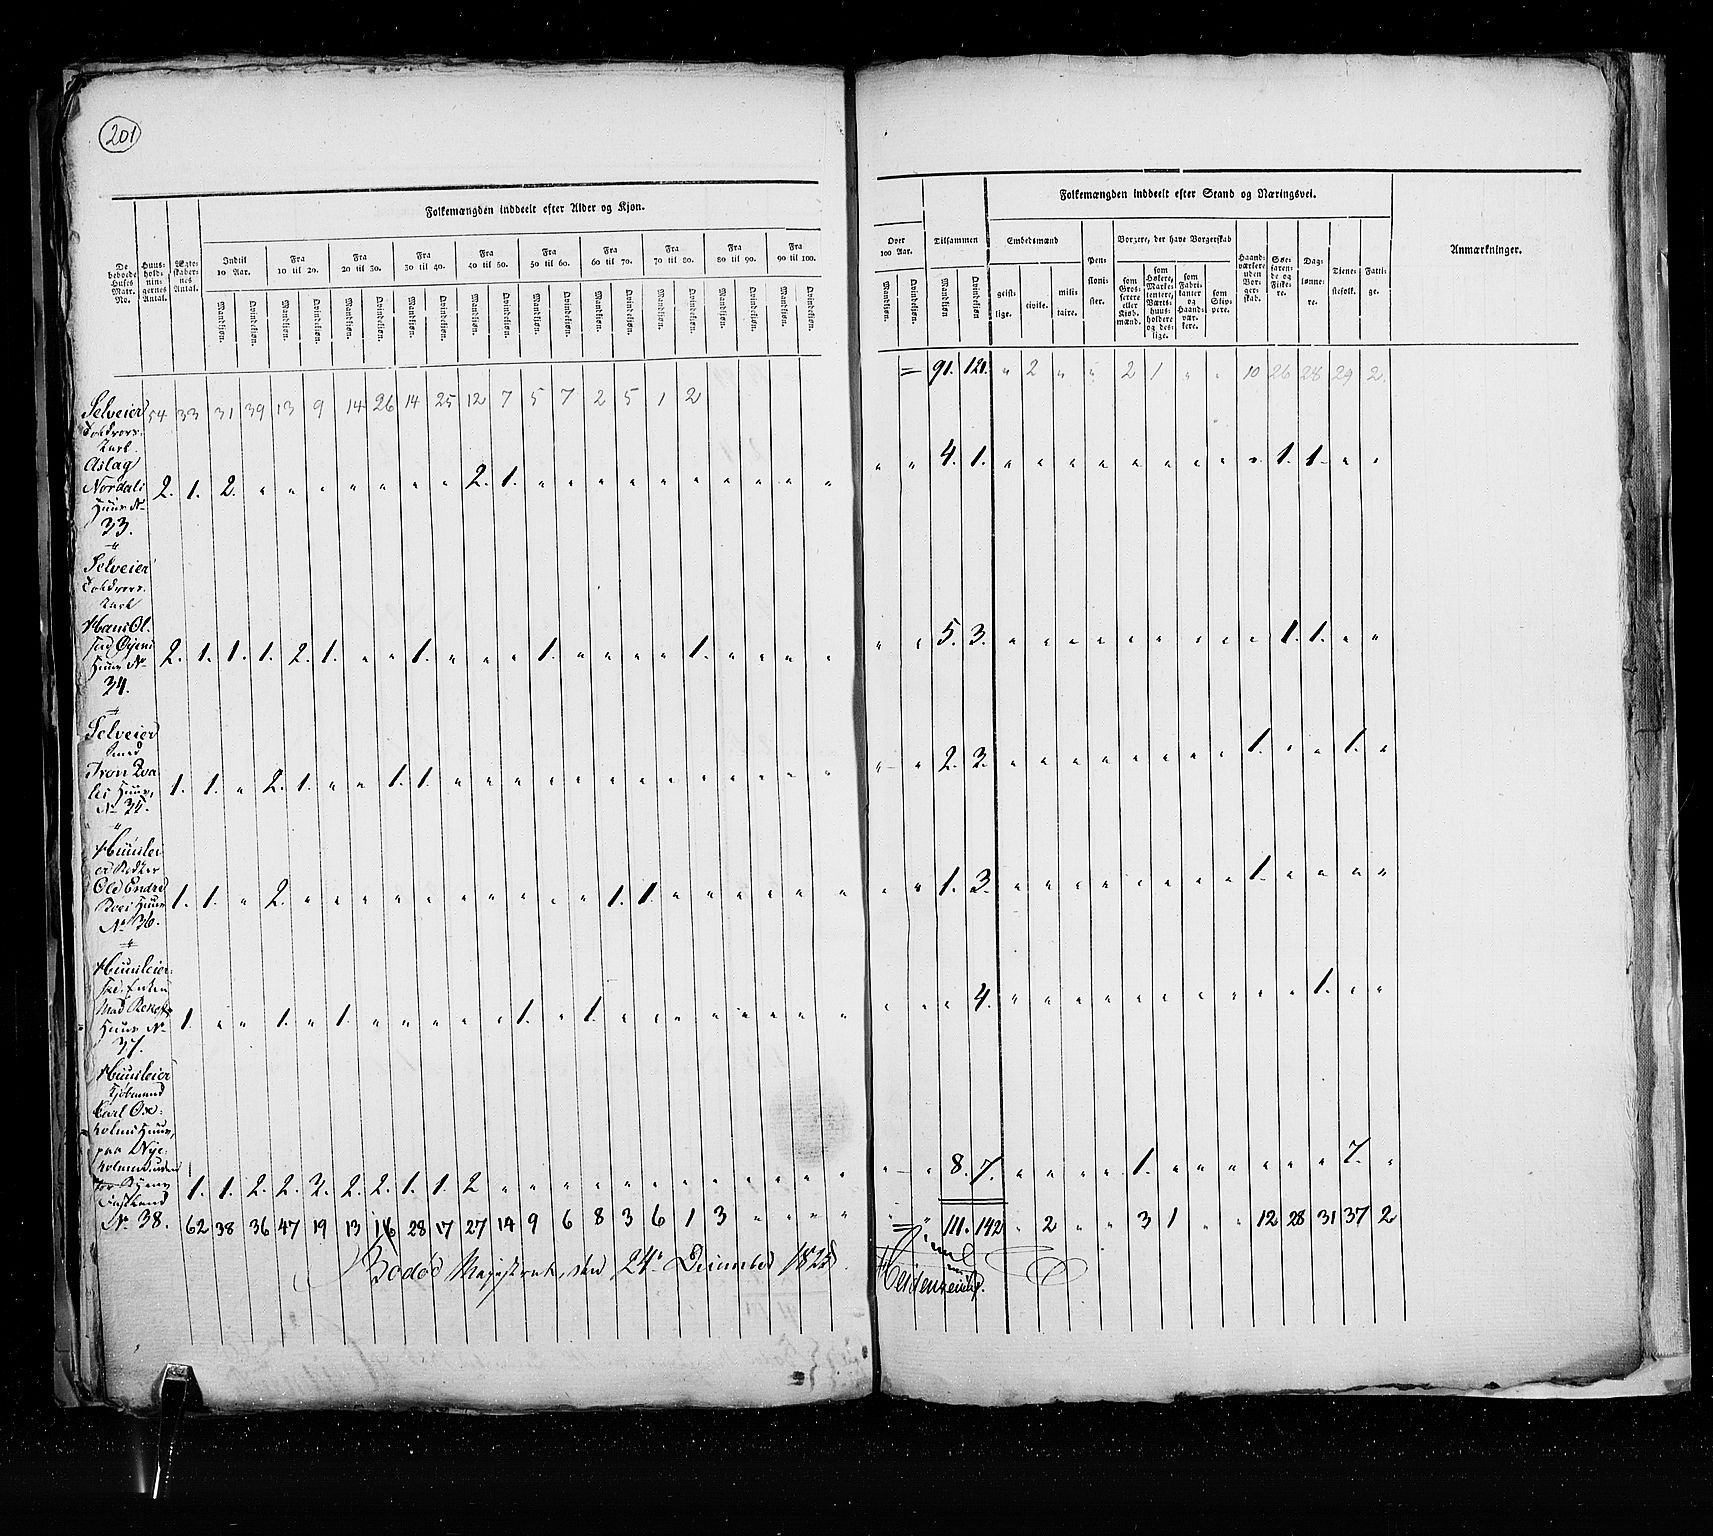 201
Folkemængden inddeelt efter Alder og Kjøn.
De beboede Huses Matr. No. | Huusholdningernes Antal. | Ægteskabernes Antal. | Indtil 10 Aar. | Fra 10 til 20. | Fra 20 til 30. | Fra 30 til 40. | Fra 40 til 50. | Fra 50 til 60. | Fra 60 til 70. | Fra 70 til 80. | Fra 80 til 90. | Fra 90 til 100.
Mandkjøn. Qvindekjøn. Mandkjøn. Qvindekjøn. Mandkjøn. Qvindekjøn. Mandkjøn. Qvindekjøn. Mandkjøn. Qvindekjøn. Mandkjøn. Qvindekjøn. Mandkjøn. Qvindekjøn. Mandkjøn. Qvindekjøn. Mandkjøn. Qvindekjøn. Mandkjøn. Qvindekjøn.
54 33 31 39 13 9 14 26 14 25 12 7 5 7 2 5 1 2
Selveier
Aslag
Nordali
Huus No
33.
2. 1. 2. " " " " " " " 2. 1. " " " " " " " " " "
Selveier
Hans Ol:
Huus No
34.
2. 1. 1. 1. 2. 1. " " 1. " " " 1. " " " " 1. " " " "
Selveier
Smed
Iron
Huus,
No 35.
1. 1. " 2. 1. " " 1. 1. " " " " " " " " " " " " "
Huuslei
er
Ole Endre
Huus
No 36.
1. 1. " 2. " " " " " " " " " " 1. 1. " " " " " "
Huusleier:
Enken
Mad
Huus No
37.
1. " " 1. " 1. " " " " " 1. " 1. " " " " " " " "
Huusleier
Kjøbmand
Carl Ox:
holms Huus,
paa Nye
holmen uden
for Byens
Fastland
No 38.
1. 1. 2. 2. 3. 2. 2. 1. 1. 2 " " " " " " " " " " " "
62 38 36 47 19 13 16 28 17 27 14 9 6 8 3 6 1 3 " " " "
Bodøe Magistrat, den 24de December 1825.
Over 100 Aar. | Tilsammen | Folkemængden inddeelt efter Stand og Næringsvei. | Anmærkninger.
Mandkjøn. Qvindekjøn. Mandkjøn Qvindekjøn.
Embedsmænd | geistlige. | civile. | militaire. | Pensionister. | Borgere, der have Borgerskab | som Grosserere eller Kiøbmænd. | som Høkere, Marketentere, Værtshuusholdere og deslige. | som Fabrikanter og Haandværkere. | som Skippere. | Haandværkere uden Borgerskab. | Søefarende og Fiskere. | Daglønnere. | Tjenestefolk. | Fattige.
= 91. 121. " 2 " " 2 1 " " 10 26 28 29 2.
" " 4. 1. " " " " " " " " " 1. 1. " "
" " 5. 3. " " " " " " " " " 1. 1. " "
" " 2. 3. " " " " " " " " 1. " " 1. "
" " 1. 3. " " " " " " " " 1. " " " "
" " " 4. " " " " " " " " " " 1. " "
" " 8. 7. " " " " 1. " " " " " " 7. "
= " 111. 142 " 2 " " 3 1 " " 12 28 31 37 2
Heidenreich.